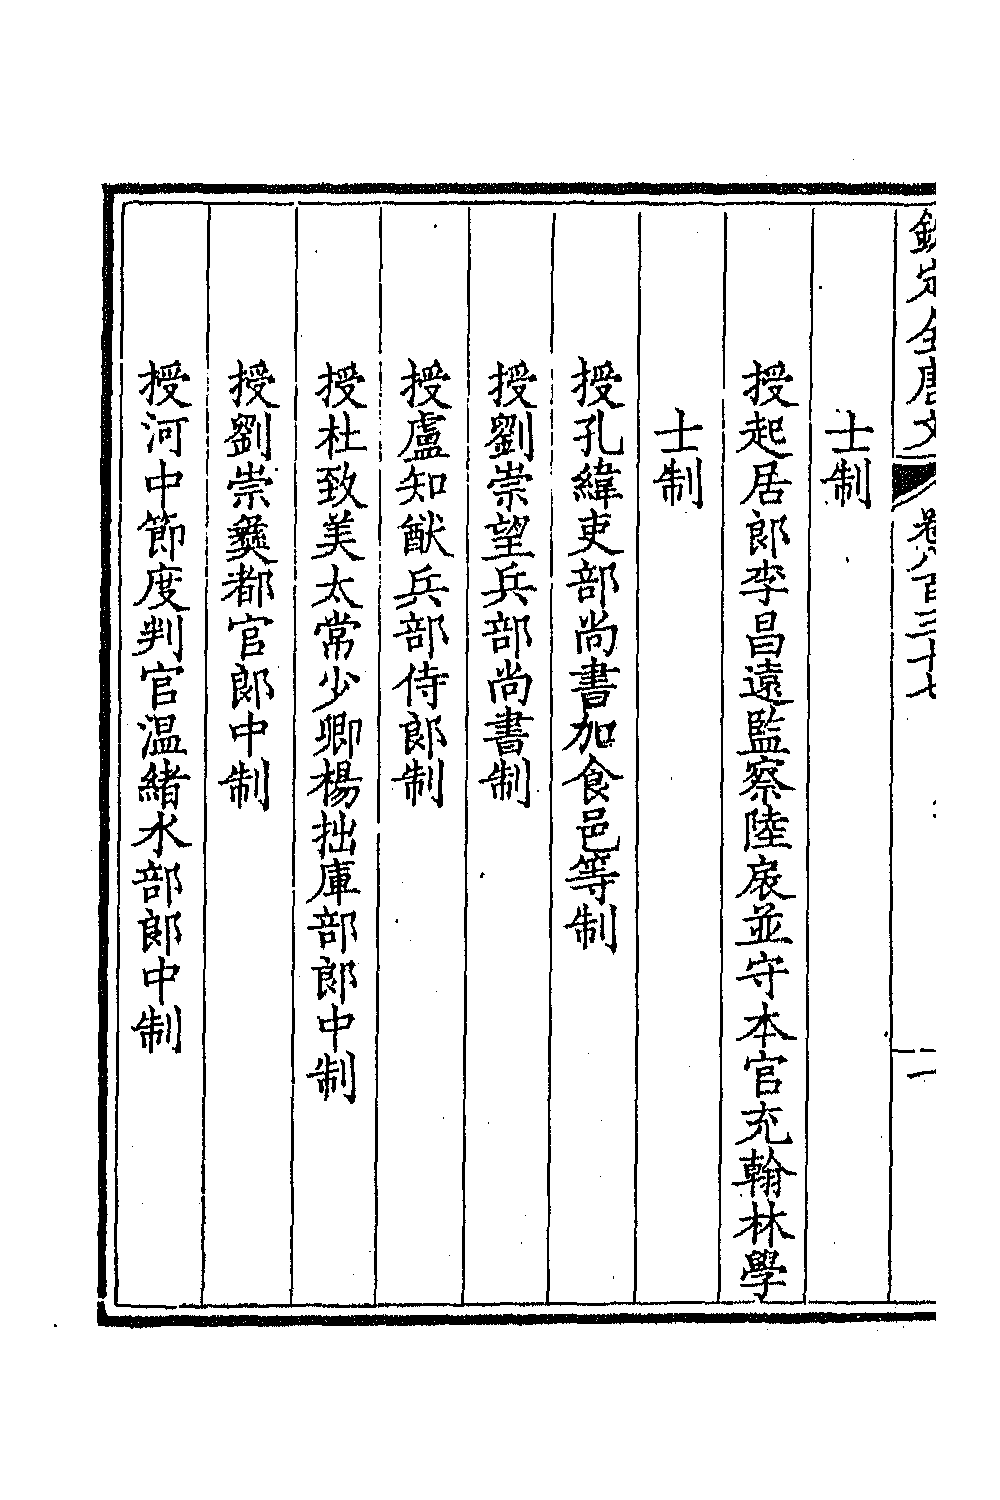 欽定全唐文 卷八百三十七 二
士制
授起居郎李昌遠監察陸扆並守本官充翰林學
士制
授孔緯吏部尚書加食邑等制
授劉崇望兵部尚書制
授盧知猷兵部侍郎制
授杜致美太常少卿楊拙庫部郎中制
授劉崇彝都官郎中制
授河中節度判官溫緒水部郎中制